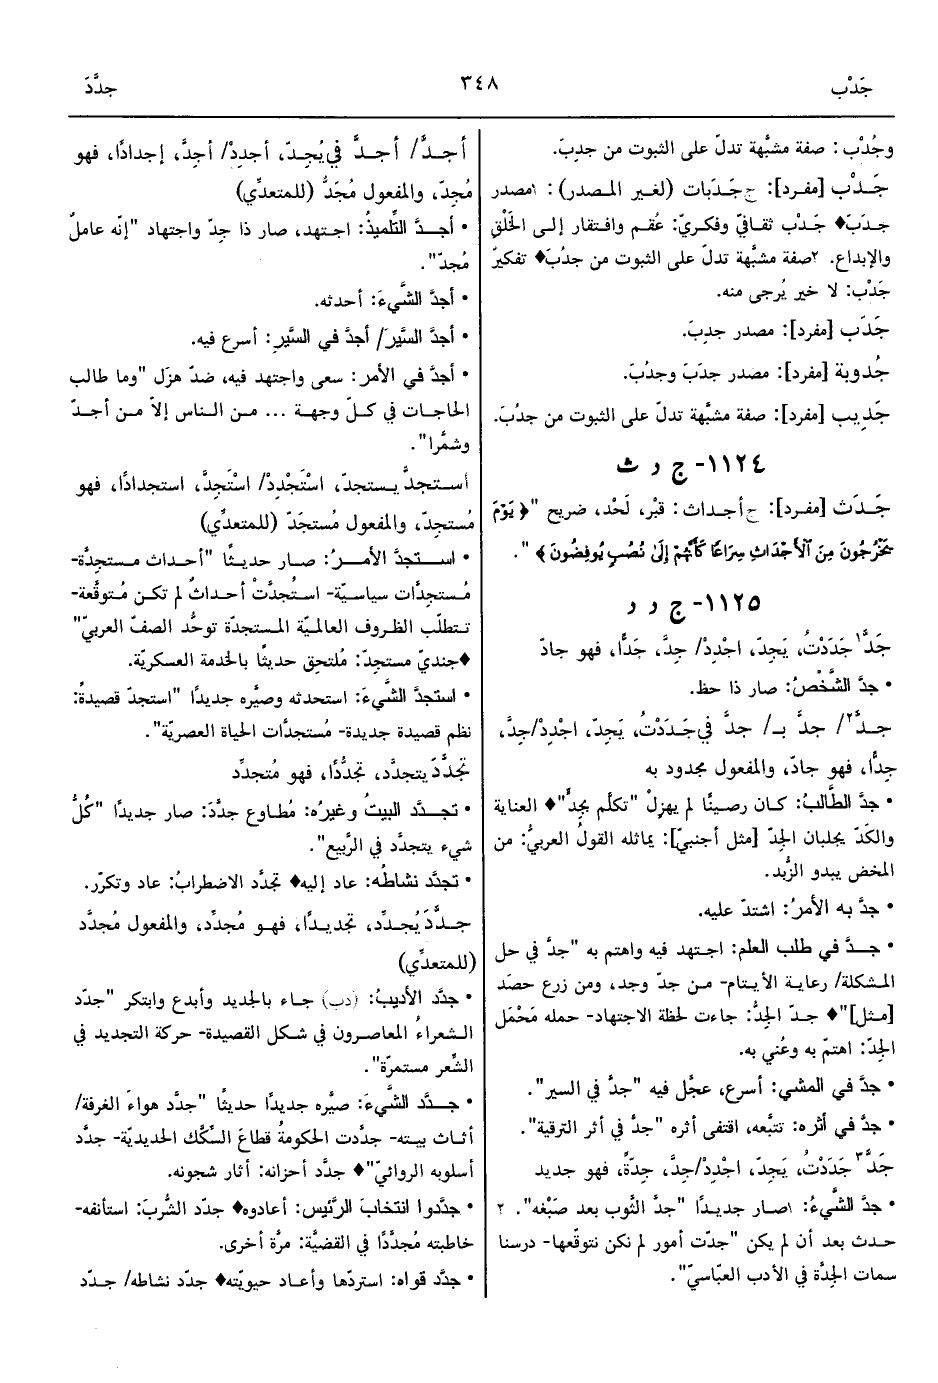 جَدْب
٣٤٨
جدَّدَ
وجُدْب: صفة مشبَّهة تدلّ على الثبوت من جدِبَ.
جَدْب [مفرد]: ج جَدَبات (لغير المصدر): ١مصدر
جدَبَ♦ جَدْب ثقافيّ وفكريّ: عُقم وافتقار إلى الخَلْق
والإبداع. ٢صفة مشبَّهة تدلّ على الثبوت من جدُبَ♦ تفكيرٌ
جَدْب: لا خير يُرجى منه.
جَدَب [مفرد]: مصدر جدِبَ.
جُدوبة [مفرد]: مصدر جدَبَ وجدُبَ.
جَدِيب [مفرد]: صفة مشبَّهة تدلّ على الثبوت من جدُبَ.
١١٢٤- ج د ث
جَدَث [مفرد]: ج أجداث: قبْر، لَحْد، ضريح "﴿يَوْمَ
يَخْرُجُونَ مِنَ الْأَجْدَاثِ سِرَاعًا كَأَنَّهُمْ إِلَىٰ نُصُبٍ يُوفِضُونَ﴾".
١١٢٥- ج د د
جَدَّ١ جَدَدْتُ، يَجِدّ، اجْدِدْ/ جِدَّ، جَدًّا، فهو جادّ
• جدَّ الشَّخْصُ: صار ذا حظ.
جدَّ٢/ جدَّ بـ/ جدَّ في جَدَدْتُ، يَجِدّ، اجْدِدْ/جِدَّ،
جِدًّا، فهو جادّ، والمفعول مجدود به
• جدَّ الطَّالبُ: كان رصينًا لم يهزِلْ "تكلَّم بجِدٍّ"♦ العناية
والكَدّ يجلبان الجِدّ [مثل أجنبيّ]: يماثله القولُ العربيُّ: من
المخض يبدو الزُّبد.
• جدَّ به الأمرُ: اشتدّ عليه.
• جدَّ في طلب العلم: اجتهد فيه واهتم به "جدَّ في حل
المشكلة/ رعاية الأيتام- من جدّ وجد، ومن زرع حصَد
[مثل]"♦ جدّ الجِدُّ: جاءت لحظة الاجتهاد- حمله مَحْمَل
الجِدّ: اهتمّ به وعُني به.
• جدَّ في المشي: أسرع، عجَّل فيه "جدَّ في السير".
• جدَّ في أثره: تتبَّعه، اقتفى أثره "جدَّ في أثر الترقية".
جَدَّ٣ جَدَدْتُ، يَجِدّ، اجْدِدْ/جِدَّ، جِدّةً، فهو جديد
• جدَّ الشَّيءُ: ١صار جديدًا "جدَّ الثَّوب بعد صَبْغه". ٢
حدث بعد أن لم يكن "جدّت أمور لم نكن نتوقّعها- درسنا
سمات الجِدَّة في الأدب العبّاسيّ".
أجدَّ/ أجدَّ في يُجِدّ، أجدِدْ/ أجِدَّ، إجدادًا، فهو
مُجِدّ، والمفعول مُجَدُّ (للمتعدِّي)
• أجدَّ التِّلميذُ: اجتهد، صار ذا جِدّ واجتهاد "إنّه عاملٌ
مُجِدّ".
• أجدَّ الشَّيءَ: أحدثه.
• أجدَّ السَّيرَ/ أجدَّ في السَّيرِ: أسرع فيه.
• أجدَّ في الأمر: سعى واجتهد فيه، ضدّ هزَل "وما طالب
الحاجات في كلّ وجهة ... من الناس إلاّ من أجدّ
وشمَّرا".
استجدَّ يستجدّ، اسْتَجْدِدْ/ اسْتَجِدَّ، استجدادًا، فهو
مُستجِدّ، والمفعول مُستجَدّ (للمتعدِّي)
• استجدَّ الأمرُ: صار حديثًا "أحداث مستجِدَّة-
مُستجِدَّات سياسيّة- استُجدَّتْ أحداثٌ لم تكن مُتوقَّعة-
تتطلّب الظروف العالميّة المستجدّة توحُّد الصفّ العربيّ"
♦جنديّ مستجدّ: مُلتحِق حديثًا بالخدمة العسكريّة.
• استجدَّ الشَّيءَ: استحدثه وصيَّره جديدًا "استجدّ قصيدةً:
نظم قصيدة جديدة- مُستجدَّات الحياة العصريّة".
تجدَّدَ يتجدَّد، تجدُّدًا، فهو مُتجدِّد
• تجدَّد البيتُ وغيرُه: مُطاوع جدَّدَ: صار جديدًا "كُلُّ
شيء يتجدَّد في الرَّبيع".
• تجدَّد نشاطُه: عاد إليه♦ تجدَّد الاضطرابُ: عاد وتكرّر.
جدَّدَ يُجدِّد، تجديدًا، فهو مُجدِّد، والمفعول مُجدَّد
(للمتعدِّي)
• جدَّد الأديبُ: (دب) جاء بالجديد وأبدع وابتكر "جدّد
الشعراءُ المعاصرون في شكل القصيدة- حركة التجديد في
الشِّعر مستمرّة".
• جدَّد الشَّيءَ: صيَّره جديدًا حديثًا "جدَّد هواءَ الغرفة/
أثاث بيته- جدَّدت الحكومةُ قطاعَ السِّكَك الحديديّة- جدَّد
أسلوبه الروائيّ"♦ جدَّد أحزانه: أثار شجونه.
• جدَّدوا انتخابَ الرَّئيس: أعادوه♦ جدّد الشُّربَ: استأنفه-
خاطبته مُجدَّدًا في القضيَّة: مرّة أخرى.
• جدَّد قواه: استردّها وأعاد حيويّته♦ جدّد نشاطه/ جدّد